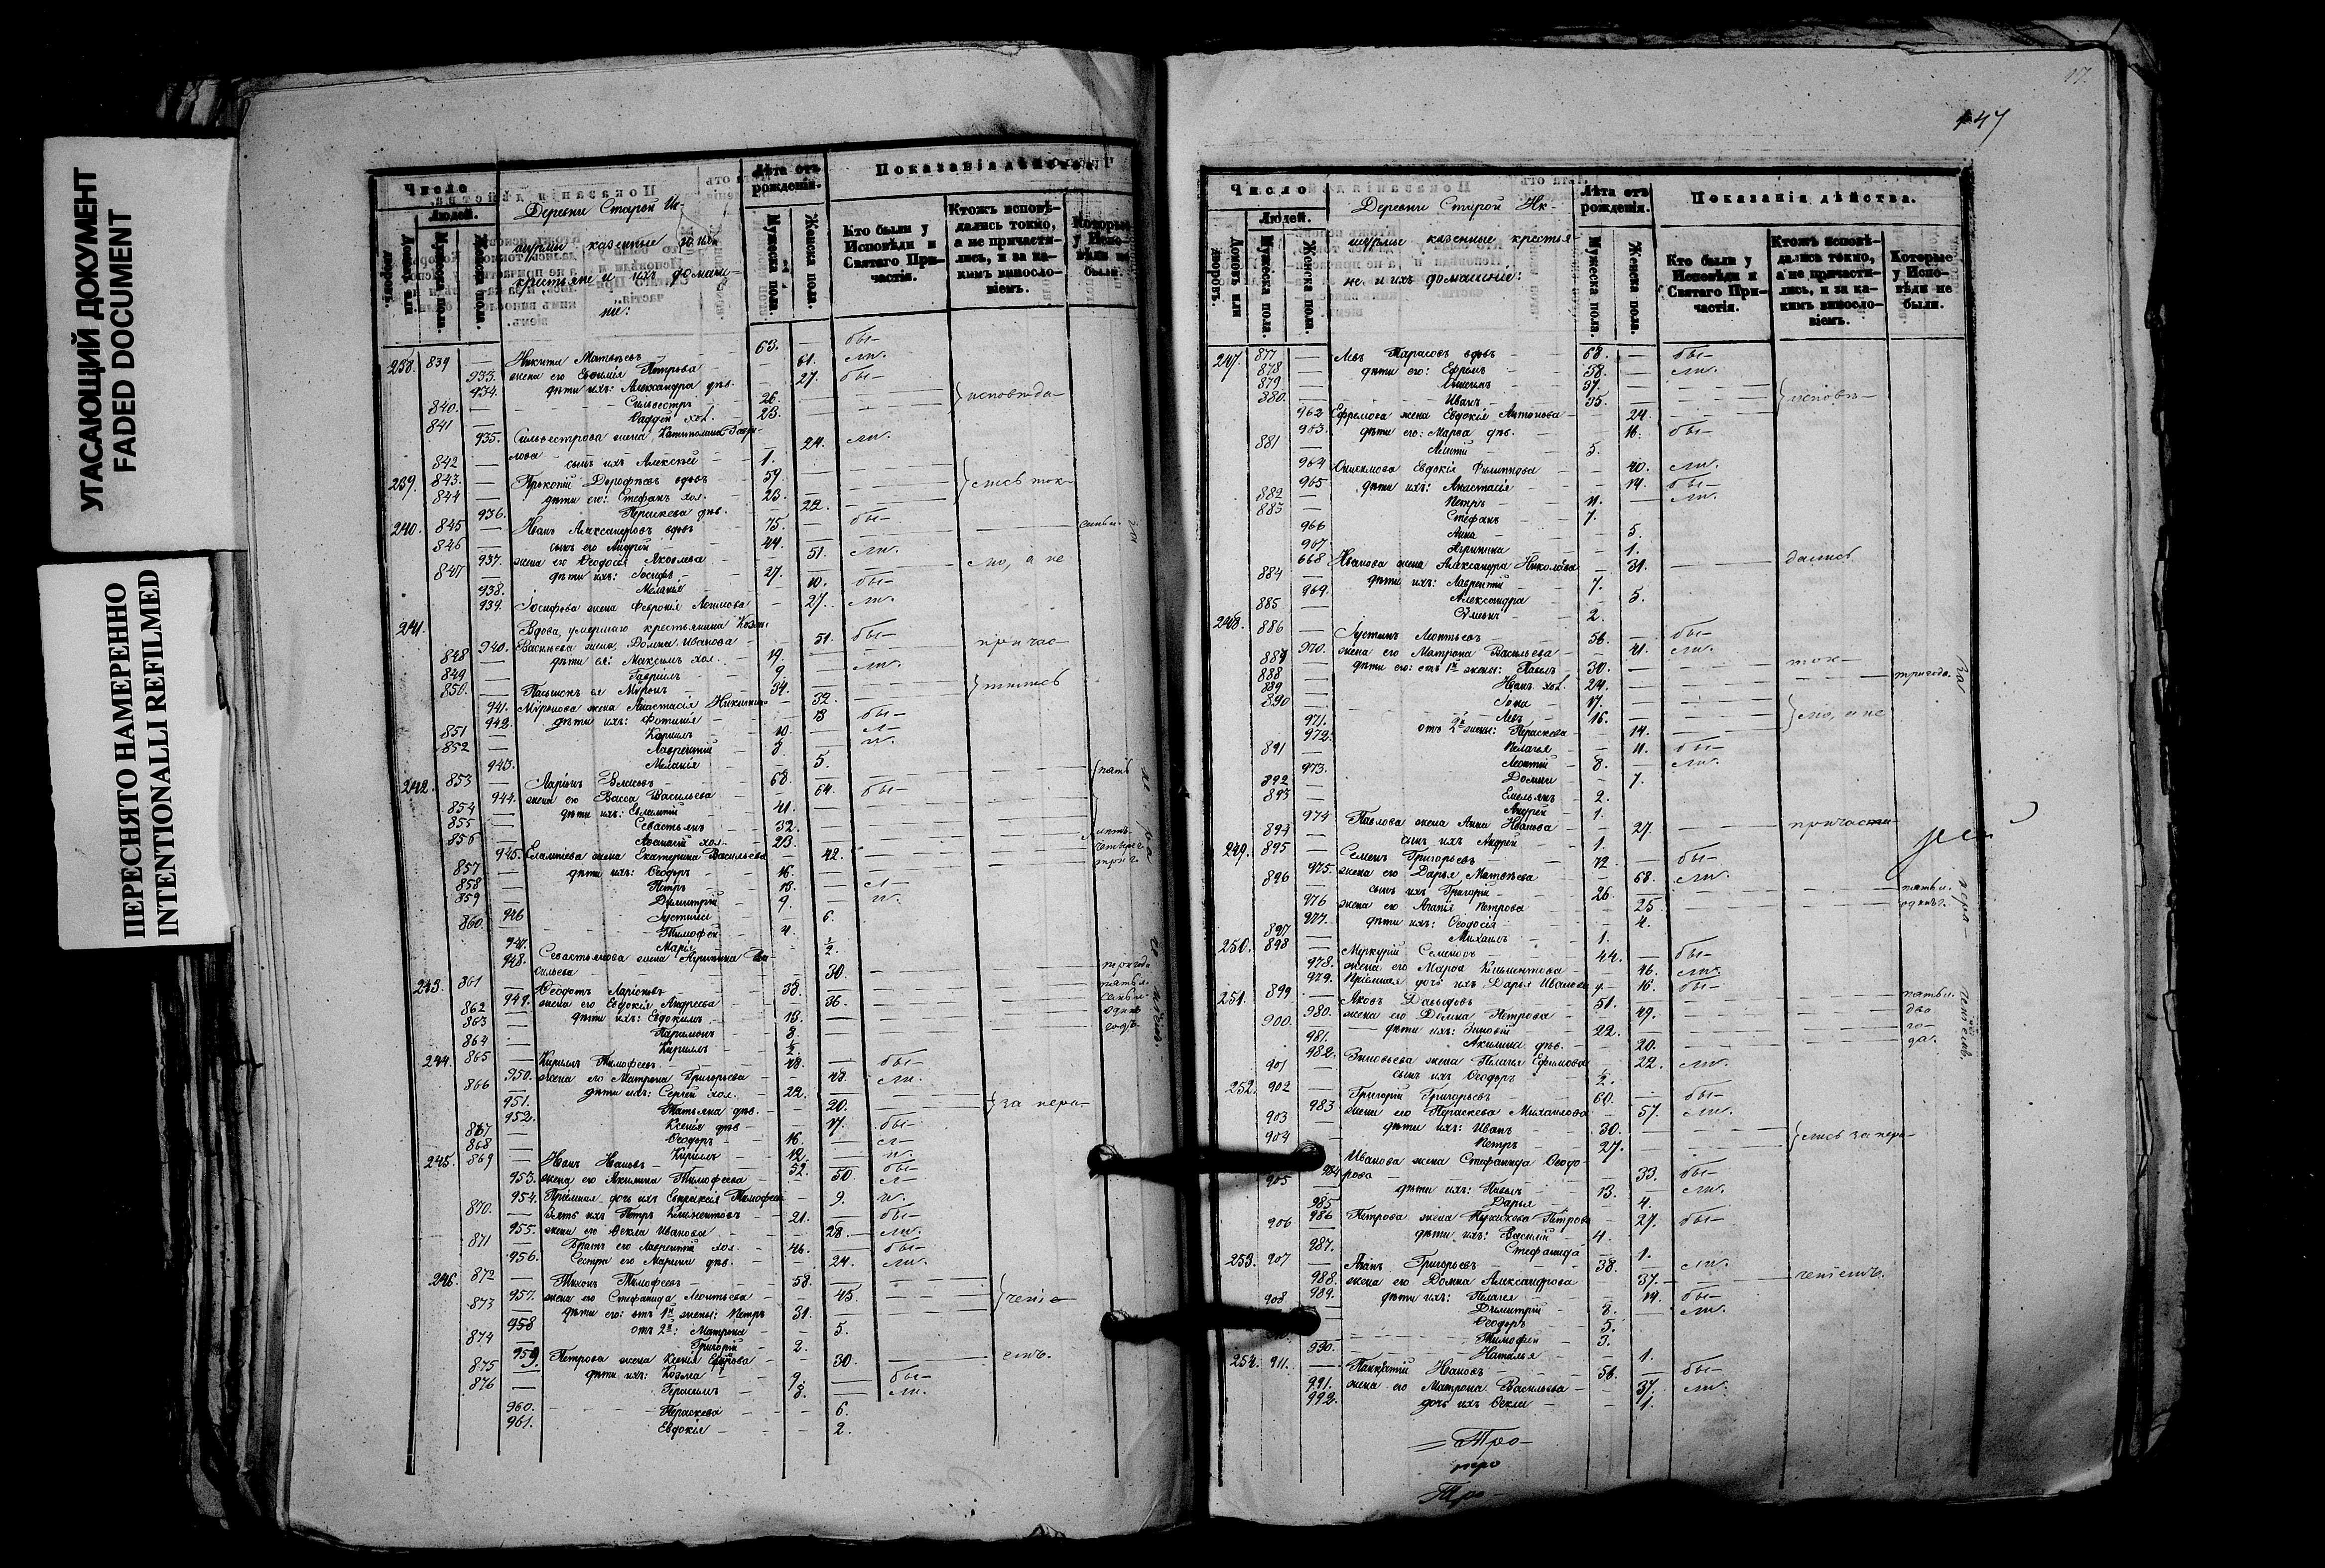 УГАСАЮЩИЙ ДОКУМЕНТ
FADED DOCUMENT
ПЕРЕСНЯТО НАМЕРЕННО
INTENTIONALLI REFILMED
Число
Людей.
Домовъ или дворовъ.
Мужеска пола.
Женска пола.
Деревни Старой Ик-
шурмы казенные
крестьяне и ихъ домаш-
ніе:
Лѣта отъ рожденія.
Мужеска пола.
Женска пола.
Показанія дѣйства.
Кто были у Исповѣди и Святаго Причастія.
Ктожъ исповѣдались токмо, а не причастились, и за какимъ винословіемъ.
Которые у Исповѣди не были.
238. 839 — Никита Матвѣевъ — 63. — бы-
933. жена его Евфимія Петрова — 61. ли.
934. дѣти ихъ: Александра дѣв. — 27. бы-
840. — Сильвестръ 26. — исповѣда-
841 — Фаддей хол. 23.
935. Сильвестрова жена Капитолина Гаври-
лова — 24. ли.
842 — сынъ ихъ Алексѣй — 1.
239. 843. — Прокопій Дорофѣевъ вдовъ 59
844 — дѣти его: Стефанъ хол. 23. лись ток-
936. Пераскева дѣв. 22.
240. 845 — Иванъ Александровъ вдовъ 75. — бы-
846 — сынъ его Андрей 44.
937. жена его Феодосія Яковлева 51. ли.
847 — дѣти ихъ: Іосифъ 27. мо, а не
938. Меланія 10. бы-
939. Іосифова жена Февронія Логинова 27. ли.
241. Вдова, умершаго крестьянина Козмы
940. Васильева жена, Домна Иванова 51. бы- причас-
848 — дѣти ея: Максимъ хол. 19.
849 — Гавріилъ 9. ли.
850. — Пасынокъ ея Мѵронъ 34. тились
941. Мѵронова жена Анастасія Никитина 32.
942. дѣти ихъ: Фотинія 13 бы-
851 — Кириллъ 10. л-
852 — Лаврентій 8. и.
943. Меланія 5.
242. 853 — Ларіонъ Власовъ 68.
944. жена его Васса Васильева 64. бы-
854 — дѣти ихъ: Евлампій 41.
855 — Севастьянъ 32.
856 — Афанасій хол. 23.
945. Евлампіева жена Екатерина Васильева 42.
857 — дѣти ихъ: Феодоръ 16.
858 — Петръ 13. л-
859 — Димитрій 9. и.
946 Іустинія 6.
860. — Тимофей 4.
947. Марія ½.
948. Севастьянова жена Агрипина Ва-
сильева 30.
243 861 — Феодотъ Ларіоновъ 38.
949. жена его Евдокія Андреева 36.
862 — дѣти ихъ: Евдокимъ 13.
863 — Парамонъ 8
864 — Кириллъ ½.
244. 865 — Кириллъ Тимофеевъ 48. бы-
950. жена его Матрона Григорьева 48. ли.
866 — дѣти ихъ: Сергей хол. 22.
951. Татьяна дѣв. 20. за нера-
952. Ксенія дѣв 17. бы-
867 — Феодоръ 16. л-
868 — Кириллъ 12. и.
245. 869 — Иванъ Ивановъ 52. бы-
953. жена его Акилина Тимофеева 50. л-
954. Пріемная дочь ихъ Евпраксія Тимофеева 9. и.
870. — Зять ихъ Петръ Климентовъ 21. бы-
955. жена его Фекла Иванова 28. ли.
871 — Братъ его Лаврентій хол. 16. бы-
956. Сестра его Марина дѣв. 24. ли.
246. 872 — Тихонъ Тимофеевъ 58.
957. жена его Стефанида Леонтьева 45. ченіе-
873 — дѣти его: отъ 1й жены: Петръ 31.
958 отъ 2й: Матрона 5.
874 — Григорій 2.
959 Петрова жена Ксенія Ефимова 30. емъ.
875 — дѣти ихъ: Козма 9. бы-
876 — Герасимъ 8. ли.
960. Пераскева 6.
961. Евдокія 2.
17.
147
Число
Людей.
Домовъ или дворовъ.
Мужеска пола.
Женска пола.
Деревни Старой Ик-
шурмы казенные крестья-
не и ихъ домашніе:
Лѣта отъ рожденія.
Мужеска пола.
Женска пола.
Показанія дѣйства.
Кто были у Исповѣди и Святаго Причастія.
Ктожъ исповѣдались токмо, а не причастились, и за какимъ винословіемъ.
Которые у Исповѣди не были.
247. 877 — Левъ Тарасовъ вдовъ 68. — бы-
878 — дѣти его: Ефремъ 38. — ли.
879 — Онисимъ 37.
880. — Иванъ 35. исповѣ-
962 Ефремова жена Евдокія Антонова 24.
963. дѣти его: Марѳа дѣв. 16. бы-
881 — 5.
964 Онисимова Евдокія Филиппова 40. ли.
965 дѣти ихъ: Анастасія 14. бы-
882 — Петръ 11. ли.
883 — Стефанъ 7.
966 Анна 5.
967 Агрипина 1.
668 Иванова жена Александра Николаева 31. дались
884 — дѣти ихъ: Лаврентій 7.
969. Александра 5.
885 — Сѵмеонъ 2.
248. 886 — Іустинъ Леонтьевъ 58. бы-
970. жена его Матрона Васильева 41. ли.
887 — дѣти его: отъ 1й жены: Павелъ 30. ток-
888 — Иванъ хол. 24. тригода.
889 — Іона 17.
890 — Левъ 16. мо, а не
971. отъ 2й жены: Пераскева 14.
972. Пелагея 11. бы-
891 — Леонтій 8. ли.
973. Домна 7.
892 — Емельянъ 2.
893 — Андрей 1.
974 Павлова жена Анна Иванова 27. причасти-
894 — сынъ ихъ Андрей 1.
249. 895 — Семенъ Григорьевъ 72. бы-
975. жена его Дарья Матвѣева 68. ли.
896 — сынъ ихъ Григорій 26. пять л.
976 жена его Агапія Петрова 25. одинъ г.
977. дѣти ихъ: Феодосія 4.
897 — Михаилъ 1.
250. 898 — Меркурій Семеновъ 44. бы-
978. жена его Марѳа Климентова 46. ли.
979. Пріемная дочь ихъ Дарья Иванова 16. бы-
251. 899 — Яковъ Давыдовъ 51. пять л.
980. жена его Домна Петрова 49. два
900. — дѣти ихъ: Зиновій 22. го-
981. Акилина дѣв. 20. да.
982. Зиновьева жена Пелагея Ефимова 22. ли.
901 — сынъ ихъ Феодоръ ½.
252. 902 — Григорій Григорьевъ 60. бы-
983 жена его Пераскева Михаилова 57. ли.
903 — дѣти ихъ: Иванъ 30.
904 — Петръ 27. лись за нера-
984 Иванова жена Стефанида Феодо-
рова 33. бы-
905 — дѣти ихъ: Павелъ 13. ли.
985 Дарья 4.
986 Петрова жена Пераскева Петрова 27. бы-
906 — дѣти ихъ: Василій 4.
987. Стефанида 1.
253. 907 — Агапъ Григорьевъ 38. ли.
988. жена его Домна Александрова 37. ченіемъ.
989. дѣти ихъ: Пелагея 14. бы-
908 — Димитрій 8. ли.
Феодоръ 5.
Тимофей 3.
990. Наталья 1.
254. 911. — Панкратій Ивановъ 58. бы-
991. жена его Матрона Васильева 37. ли.
992. дочь ихъ Фекла 1.